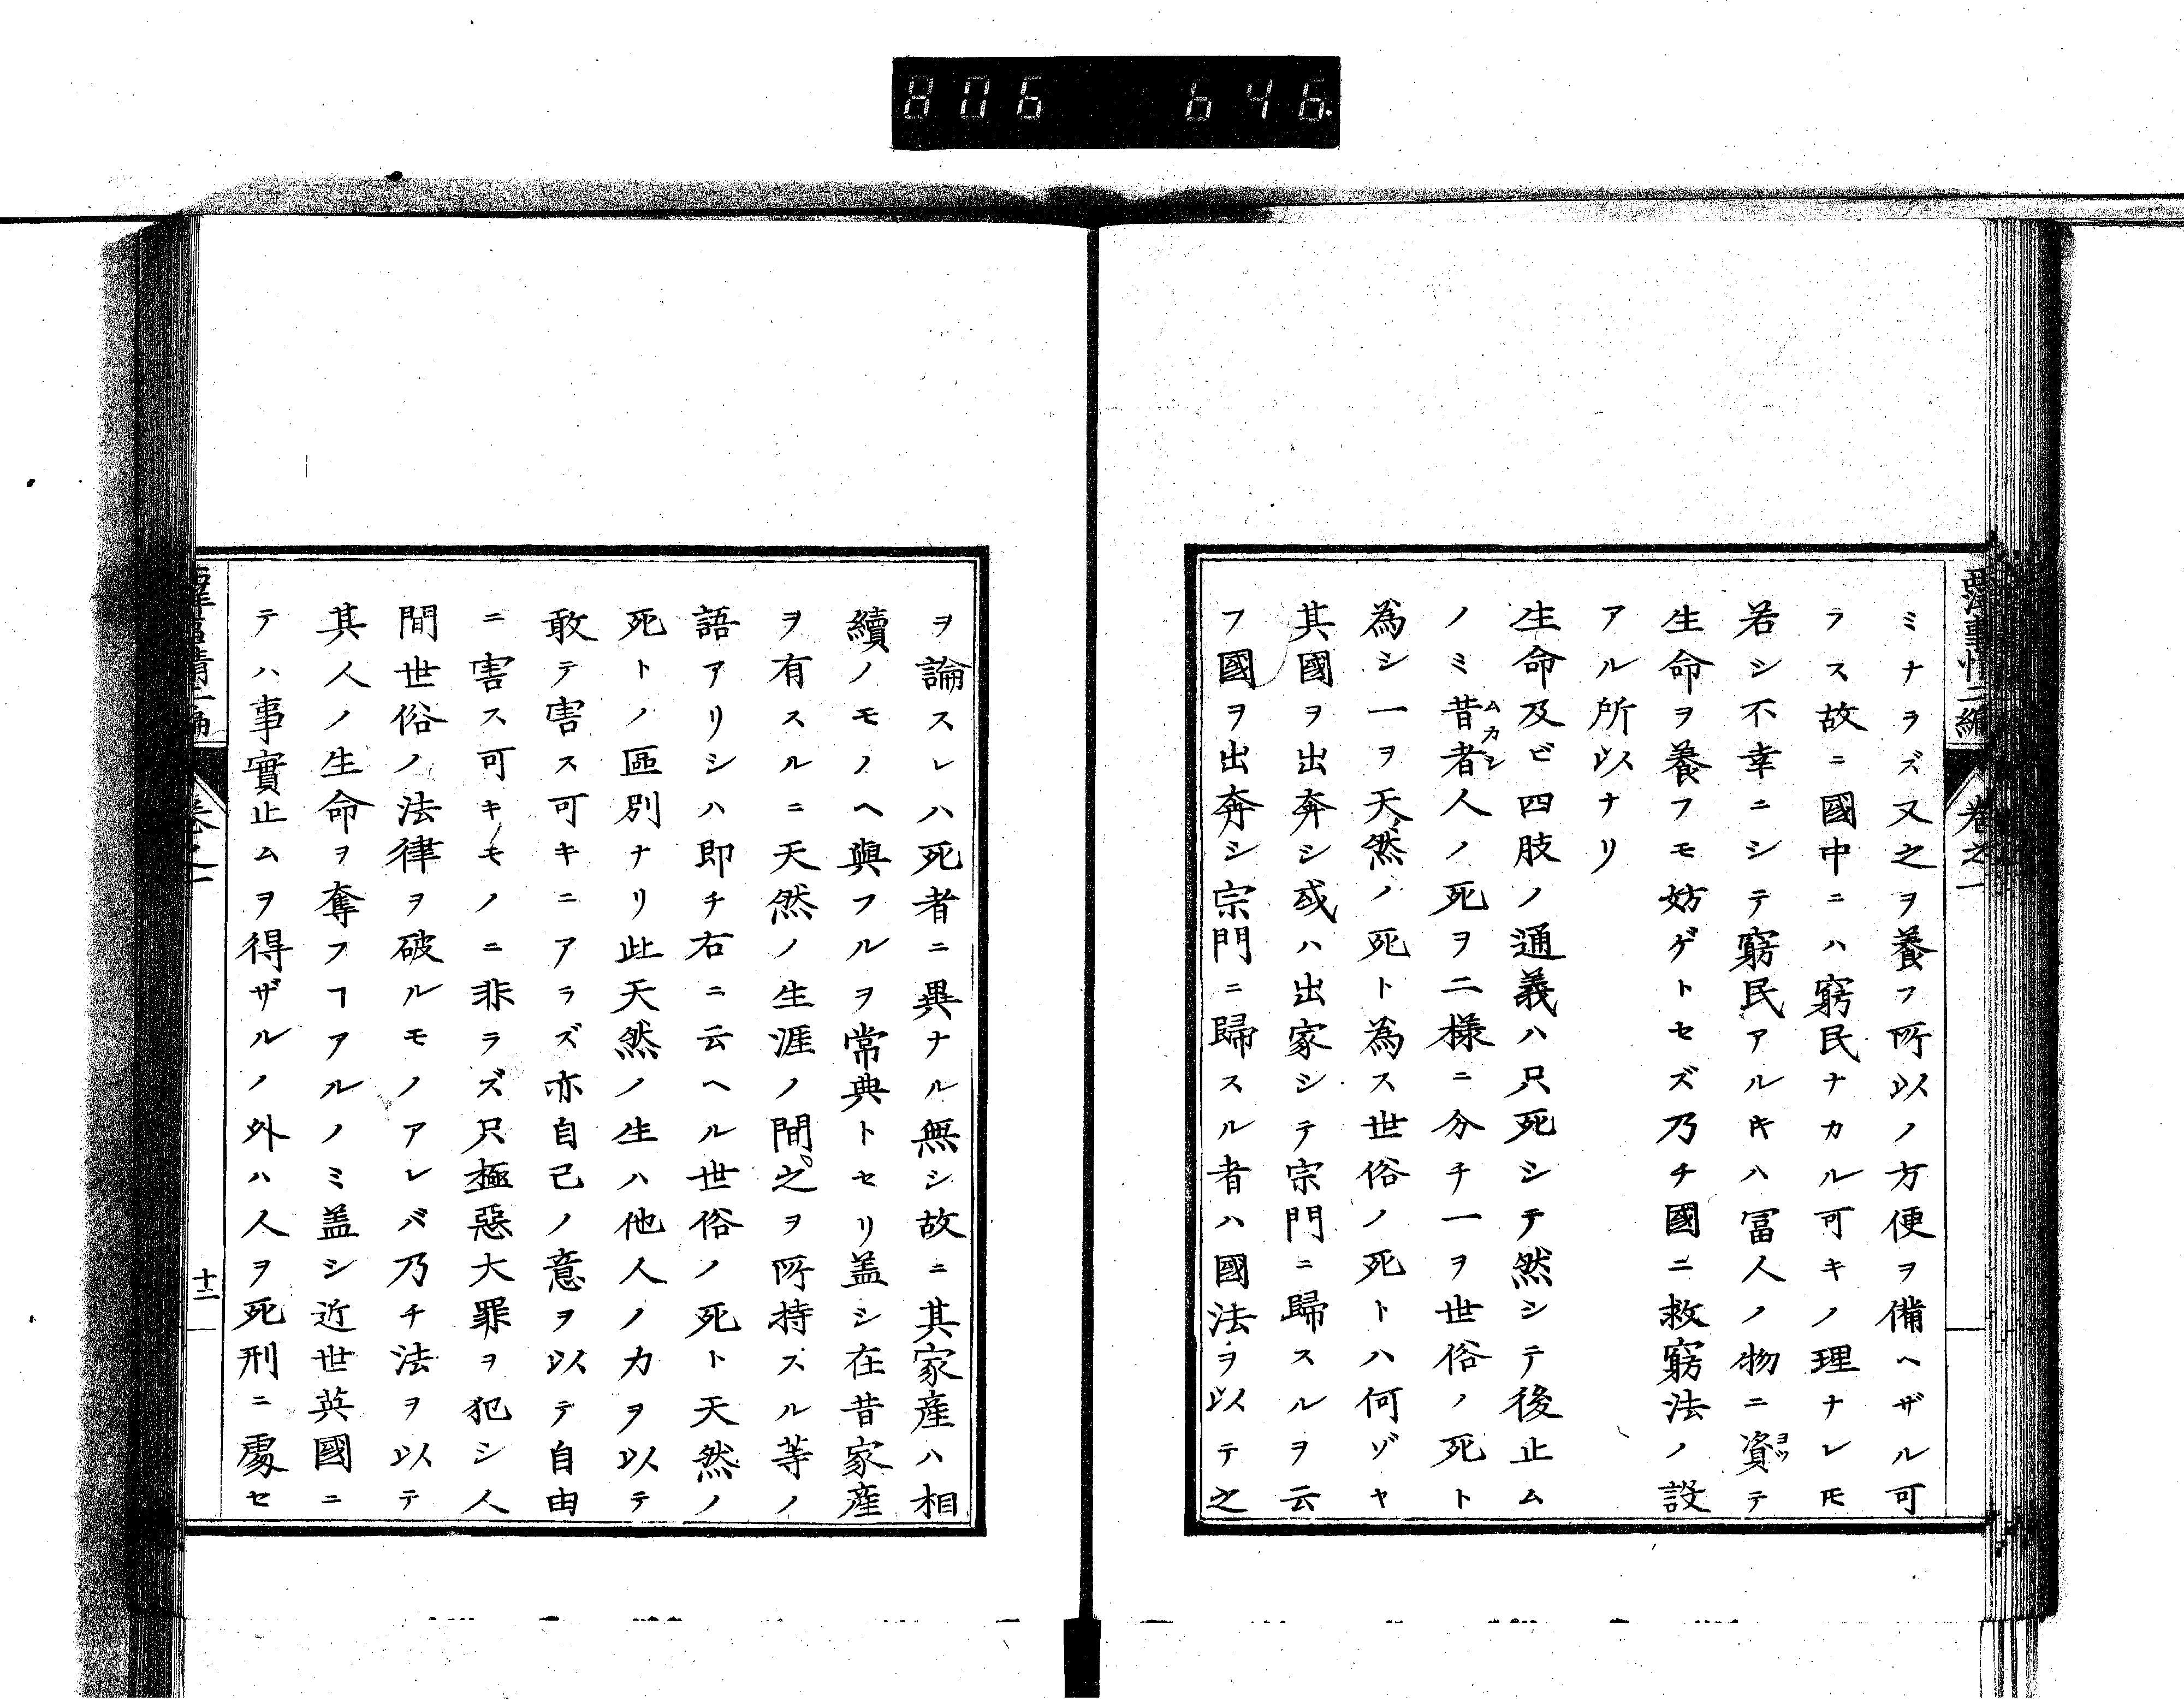 806 646
西洋事情二編 卷之一
ミナラズ又之ヲ養フ所以ノ方便ヲ備ヘザル可
ラス故ニ國中ニハ窮民ナカル可キノ理ナレ𪜈
若シ不幸ニシテ窮民アルキハ冨人ノ物ニ資テ
ヨツ
生命ヲ養フモ妨ゲトセズ乃チ國ニ救窮法ノ設
アル所以ナリ
生命及ビ四肢ノ通義ハ只死シテ然シテ後止ム
ノミ昔者人ノ死ヲ二樣ニ分チ一ヲ世俗ノ死ト
ムカシ
為シ一ヲ天然ノ死ト為ス世俗ノ死トハ何ゾヤ
其國ヲ出奔シ或ハ出家シテ宗門ニ歸スルヲ云
フ國ヲ出奔シ宗門ニ歸スル者ハ國法ヲ以テ之
ヲ論スレハ死者ニ異ナル無シ故ニ其家産ハ相
續ノモノヘ與フルヲ常典トセリ盖シ在昔家産
ヲ有スルニ天然ノ生涯ノ間之ヲ所持スル等ノ
語アリシハ即チ右ニ云ヘル世俗ノ死ト天然ノ
死トノ區別ナリ此天然ノ生ハ他人ノカヲ以テ
敢テ害ス可キニアラズ亦自己ノ意ヲ以テ自由
ニ害ス可キモノニ非ラズ只極惡大罪ヲ犯シ人
間世俗ノ法律ヲ破ルモノアレバ乃チ法ヲ以テ
其人ノ生命ヲ奪フヿアルノミ盖シ近世英國ニ
テハ事實止ムヲ得ザルノ外ハ人ヲ死刑ニ處セ
卷之一 十二